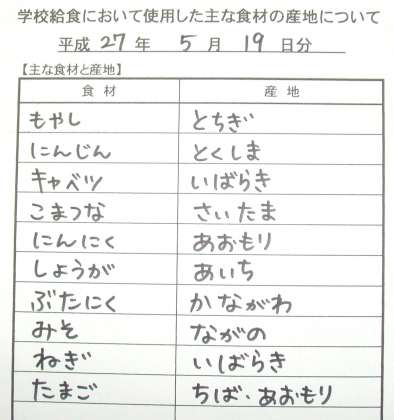 学校給食において使用した主な食材の産地について
平成 27 年 5 月 19 日分
【主な食材と産地】
食材 産地
もやし とちぎ
にんじん とくしま
キャベツ いばらき
こまつな さいたま
にんにく あおもり
しょうが あいち
ぶたにく かながわ
みそ ながの
ねぎ いばらき
たまご ちば・あおもり